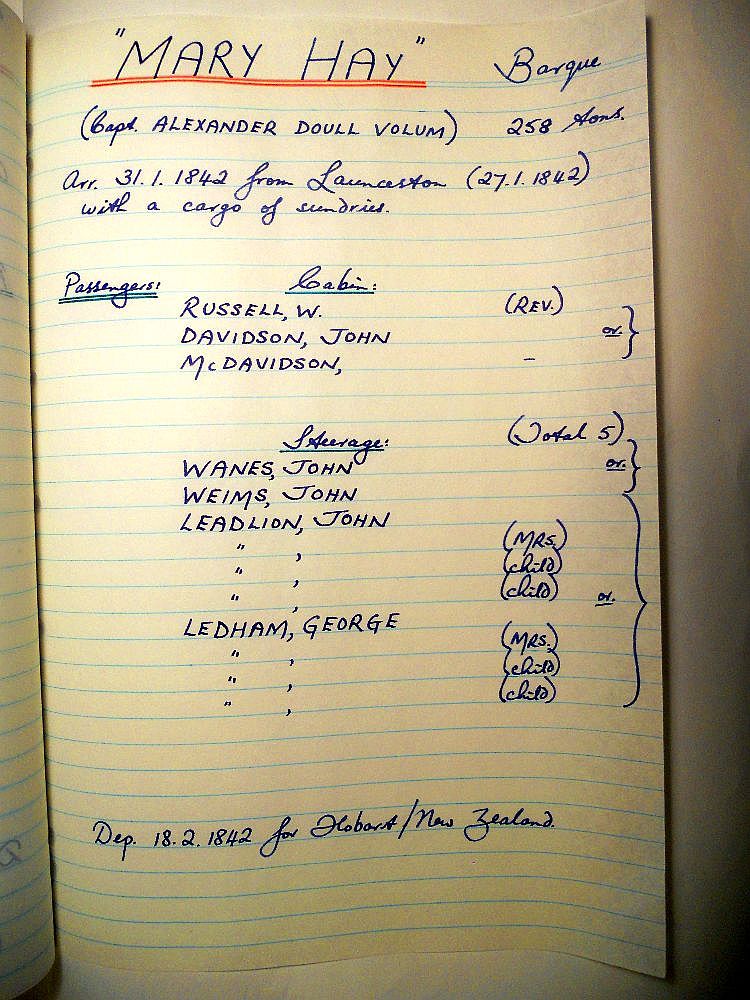 "MARY HAY" Barque
(Capt. ALEXANDER DOULL VOLUM) 258 tons.
Arr. 31.1.1842 from Launceston (27.1.1842)
with a cargo of sundries.
Passengers: Cabin:
RUSSELL, W. (REV.)
DAVIDSON, JOHN or. }
McDAVIDSON, -
Steerage: (Total 5)
WANES, JOHN or. }
WEIMS, JOHN
LEADLION, JOHN
" , (MRS.)
" , (child)
" , (child) or. }
LEDHAM, GEORGE
" , (MRS.)
" , (child)
" , (child)
Dep. 18.2.1842 for Hobart/New Zealand.